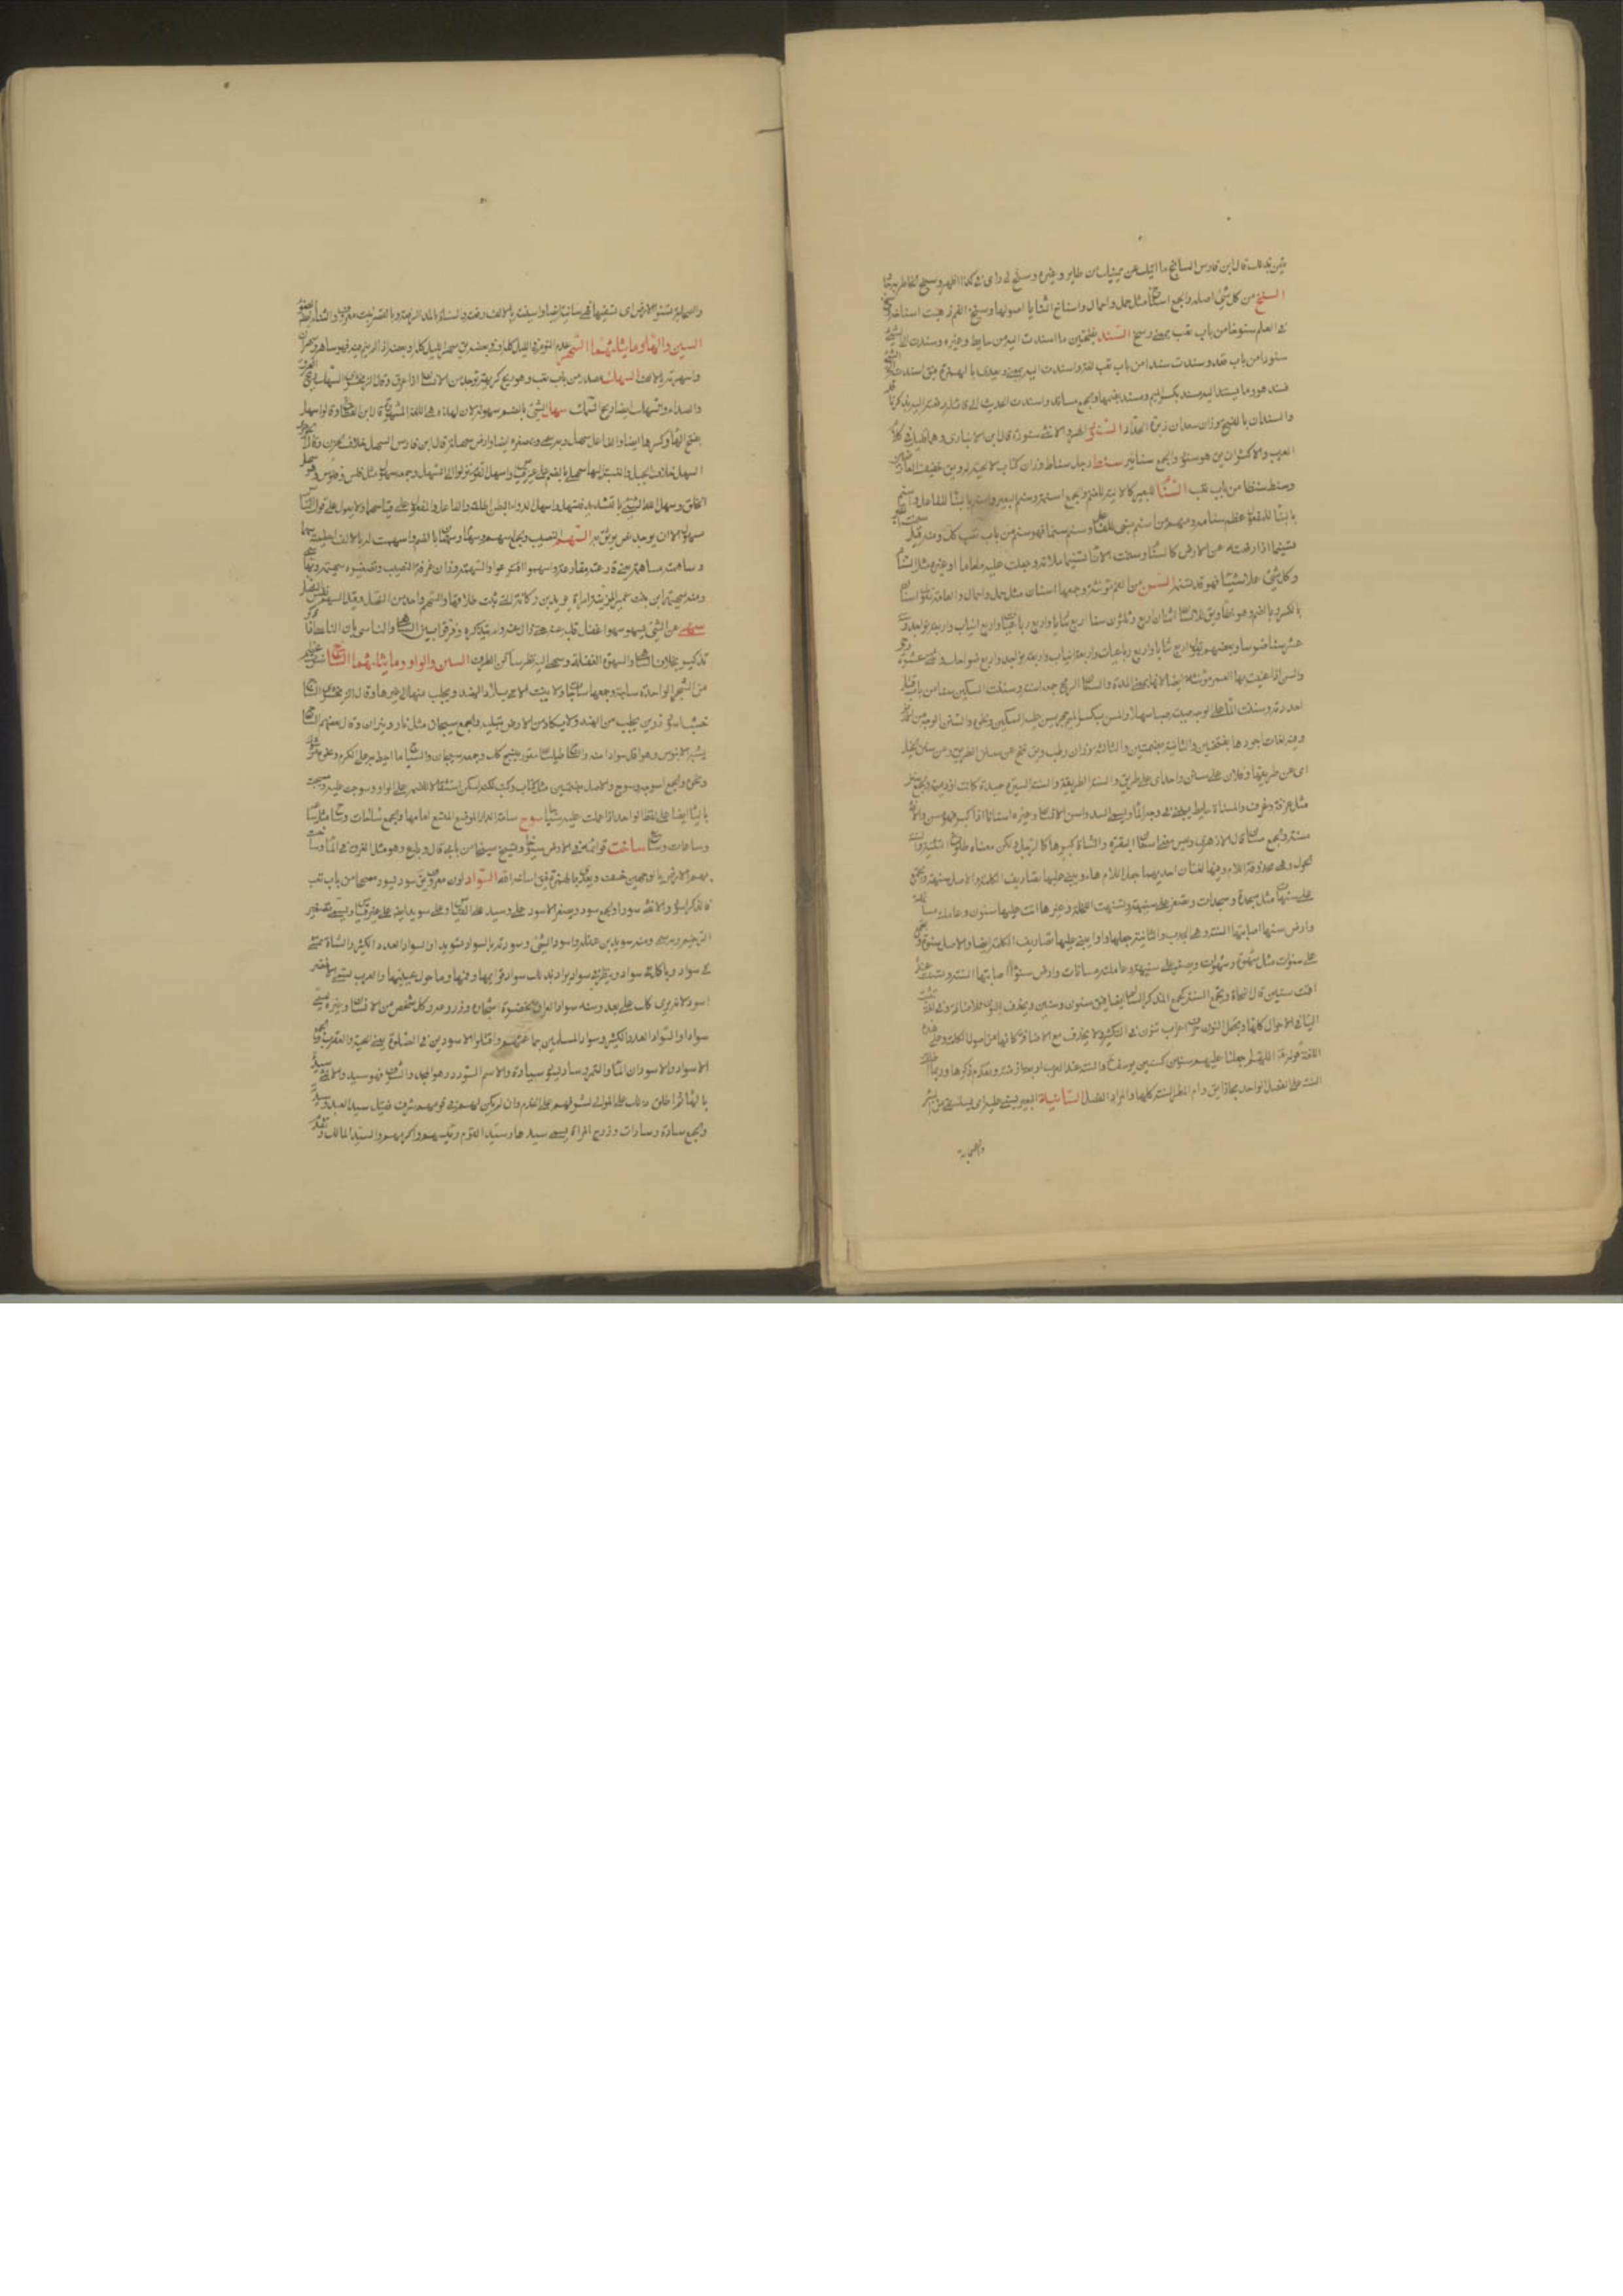 يتمن بذلك قال ابن فارس السانح ما اتاك عن يمينك من طاير وغيره وسنح لى راى فى كذا اظهر وسنح الخاطر به
السنخ من كل شئ اصله والجمع اسناخ مثل حمل واحمال واسناخ الثنايا اصولها وسنخ الفم ذهبت اسناخه
فى العلم سنوخا من باب قعد بمعنى رسخ السند بفتحتين ما استندت اليه من حايط وغيره وسندت الى الشئ
سنودا من باب قعد وسندت سندا من باب تعب لغة واستندت اليه بمعنى ويعدى بالهمزة فيق اسندت
فسند هو وما يستند اليه مسند بكسر الميم ومسند بضمها والجمع مساند واسندت الحديث الى قائله رفعته اليه بذكر
والسندان بالفتح وزان سعدان زبرة الحداد السنور الهر والانثى سنورة قال ابن الانبارى وهما قليل فى كلام
العرب والاكثر ان يق هو ضيون والجمع سنانير سنط رجل سناط وزان كتاب لا لحية له ويق خفيف العارض
وسنط سنطا من باب تعب السنام للبعير كالالية للغنم والجمع اسنمة وسنم البعير واسنم بالبنا للفاعل
بالبنا للمفعول عظم سنامه ومنهم من اسنم مبنى للفاعل وسنم سنما فهو سنم من باب تعب كك ومنه قيل
تسنيما اذا رفعته عن الارض كالسنام وسنمت الاناء تسنيما ملاته وجعلت عليه طعاما او غيره مثل السنام
وكل شئ علا شيئا فهو قد تسنمه السن من الفم مؤنثة وجمعها اسنان مثل حمل واحمال والعامة تقول اسنان
بالكسر وبالضم وهو خطا ويق للانسان اثنان وثلثون سنا اربع ثنايا واربع رباعيات واربع انياب واربعة نواجد
عشر ضرسا وبعضهم يقول اربع ثنايا واربع رباعيات واربعة انياب واربعة نواجد واربع ضواحك واثنتى عشرة
والسن اذا عنيت بها العمر مؤنثة ايضا لانها بمعنى المدة والسنان الرمح جمعه اسنة وسننت السكين سنا من باب قتل
احددته وسننت الما على الوجه صببته صبا سهلا والمسن بكسر الميم حجر يسن عليه السكين ونحوه والسنن الوجه من الارض
وفيه لغات اجودها بفتحتين والثانية بضمتين والثالثة وزان رطب ويق تنح عن سنن الطريق وعن سنن الخيل
اى عن طريقها وفلان على سنن واحد اى على طريق والسنة الطريقة والسنة السيرة حميدة كانت او ذميمة والجمع سنن
مثل غرفة وغرف والمسناة حايط يبنى فى وجه الما ويسمى السد واسن الانسان وغيره اسنانا اذا كبر فهو مسن والانثى
مسنة والجمع مسان قال الازهرى وليس معنى اسنان البقرة والشاة كبرها كالرجل ولكن معناه طلوع الثنية والسنة
الحول وهى محذوفة اللام وفيها لغتان احديهما جعل اللام هاء ويبنى عليها تصاريف الكلمة والاصل سنهة وتجمع
على سنهات مثل سجدة وسجدات وتصغر على سنيهة وتسنهت النخلة وغيرها اتت عليها سنون وعاملته مسانهة
وارض سنهاء اصابتها السنة وهى الجدب والثانية جعلها واوا يبنى عليها تصاريف الكلمة ايضا والاصل سنوة وتجمع
على سنوات مثل شهوة وشهوات وتصغر على سنية وعاملته مساناة وارض سنواء اصابتها السنة وتسنيت عنده
اقمت سنين قال النحاة وتجمع السنة كجمع المذكر السالم ايضا فيق سنون وسنين وتحذف النون للاضافة وفى لغة تثبت
اليا فى الاحوال كلها وتجعل النون حرف اعراب تنون فى التنكير ولا تحذف مع الاضافة كانها من اصول الكلمة وعلى هذه
اللغة قوله ع اللهم اجعلها عليهم سنين كسنين يوسف والسنة عند العرب اربعة ازمنة وتقدم ذكرها وربما اطلقت
السنة على الفصل الواحد مجازا يق دام المطر السنة كلها والمراد الفصل السانية البعير يسنى عليه اى يستقى من البئر
والسحابة
والسحابة تسنو الارض اى تسقيها فهى سانية ايضا واسنيته بالالف رفعته والسناء بالمد الرفعة وبالقصر نبت معروف والسنا الضوء
السين والهاء وما يثلثهما السهر عدم النوم فى الليل كله او فى بعضه يق سهر الليل كله او بعضه اذا لم ينم فيه فهو ساهر وسهران
واسهرته بالالف السهك مصدر من باب تعب وهو ريح كريهة توجد من الانسان اذا عرق وقال الزمخشرى السهك ريح العرق
والصداء والسهك ايضا ريح السمك سهل الشئ بالضم سهولة لان هذه هى اللغة المشهورة قال ابن القطاع وقالوا سهل
بفتح الهاء وكسرها ايضا والفاعل سهل وبه سمى وبمصغره ايضا وارض سهلة قال ابن فارس السهل خلاف الحزن وقال الجوهرى
السهل خلاف الجبل والنسبة اليها سهلى بالضم على غير قياس واسهل القوم نزلوا الى السهل وجمعه سهول مثل فلس وفلوس وهو سهل
الخلق وسهل الله الشئ بالتشديد فتسهل واسهل الدواء البطن اطلقه والفاعل والمفعول على قياسهما ولا يعول على قول الناس
مسهول الا ان يوجد نص يوثق به السهم النصيب والجمع سهم وسهام وسهمان بالضم واسهمت له بالالف اعطيته سهما
وساهمته مساهمة بمعنى قارعته مقارعة واستهموا اقترعوا والسهمة وزان غرفة النصيب وتصغيره سهيمة وبها سمى
ومنه سهيمة ابن بنت عمير المزنية امراة يزيد بن ركانة التى بت طلاقها والسهم واحد من النبل وقيل السهم نفس النصل
سهى عن الشئ يسهو سهوا غفل قلبه عنه حتى زال عنه ولم يتذكره وفرقوا بين الساهى والناسى بان الناسى اذا ذكر
تذكر بخلاف الساهى والسهوة الغفلة وسهى اليه نظر ساكن الطرف السين والواو وما يثلثهما الساج ضرب عظيم
من الشجر الواحدة ساجة وجمعها ساجات ولا ينبت الا ببلاد الهند ويجلب منها الى غيرها وقال الزمخشرى الساج
خشب اسود رزين يجلب من الهند ولا تكاد الارض تبليه والجمع سيجان مثل نار ونيران وقال بعضهم الساج
يشبه الابنوس وهو اقل سوادا منه والساج طيلسان مقور ينسج كك وجمعه سيجان والسياج ما احيط به على الكرم ونحوه من شوك
ونحوه والجمع اسوجة وسوج والاصل بضمتين مثل كتاب وكتب لكنه اسكن استثقالا للضمة على الواو وسوجت عليه وسيجت
بالياء ايضا على لفظ الواحد اذا عملت عليه سياجا سوح ساحة الدار الموضع المتسع امامها والجمع ساحات وساح مثل ساعة
وساعات وساع ساخت قوائمه فى الارض سوخا وتسيخ سيخا من بابى قال وباع وهو مثل الغرق فى الما وساخت
بهم الارض بالوجهين خسفت ويعدى بالهمزة فيق اساخه الله السواد لون معروف يق سود يسود مصححا من باب تعب
فالذكر اسود والانثى سوداء والجمع سود ويصغر الاسود على اسيد على القياس وعلى سويد ايضا على غير قياس ويسمى تصغير
الترخيم وبه سمى ومنه سويد بن غفلة واسود الشئ وسودته بالسواد تسويدا والسواد العدد الكثير والشاة تمشى
فى سواد وتاكل فى سواد وتنظر فى سواد يراد بذلك سواد قوايمها وفمها وما حول عينيها والعرب تسمى الاخضر
اسود لانه يرى كك على بعد ومنه سواد العراق لخضرة اشجاره وزروعه وكل شخص من الانسان وغيره يسمى
سوادا والسواد العدد الكثير وسواد المسلمين جماعتهم واقتلوا الاسودين فى الصلوة يعنى الحية والعقرب والجمع
الاساود والاسودان الماء والتمر وساد يسود سيادة والاسم السودد وهو المجد والشرف فهو سيد والانثى سيدة
بالهاء ثم اطلق ذلك على الموالى لشرفهم على الخدم وان لم يكن لهم فى قومهم شرف فقيل سيد العبد وسيدته
والجمع سادة وسادات وزوج المراة يسمى سيدها وسيد القوم رئيسهم واكرمهم والسيد المالك وتقدم